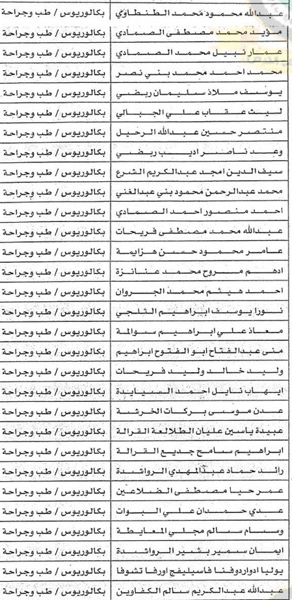 عبدالله محمود محمد الطنطاوي بكالوريوس / طب وجراحة
مؤيد محمد مصطفى الصمادي بكالوريوس / طب وجراحة
عمار نبيل محمد الصمادي بكالوريوس / طب وجراحة
محمد احمد محمد بني نصر بكالوريوس / طب وجراحة
يوسف ملاذ سليمان ربضي بكالوريوس / طب وجراحة
ليث عقاب علي الجبالي بكالوريوس / طب وجراحة
منتصر حسين عبدالله الرحيل بكالوريوس / طب وجراحة
وعد ناصر اديب ربضي بكالوريوس / طب وجراحة
سيف الدين امجد عبدالكريم الشرع بكالوريوس / طب وجراحة
محمد عبدالرحمن محمود بني عبدالغني بكالوريوس / طب وجراحة
احمد منصور احمد الصمادي بكالوريوس / طب وجراحة
عبدالله محمد مصطفى فريحات بكالوريوس / طب وجراحة
عامر محمود حسن هزايمة بكالوريوس / طب وجراحة
ادهم مروح محمد عنانزة بكالوريوس / طب وجراحة
احمد هيثم محمد الجروان بكالوريوس / طب وجراحة
نورا يوسف ابراهيم الثلجي بكالوريوس / طب وجراحة
معاذ علي ابراهيم سوالمة بكالوريوس / طب وجراحة
منى عبدالفتاح ابو الفتوح ابراهيم بكالوريوس / طب وجراحة
وليد خالد وليد فريحات بكالوريوس / طب وجراحة
ايهاب نايل احمد السيايدة بكالوريوس / طب وجراحة
عدن موسى بركات الخرشة بكالوريوس / طب وجراحة
عبيدة ياسين عليان الطلالعة القرالة بكالوريوس / طب وجراحة
ابراهيم سامح جديع القرالة بكالوريوس / طب وجراحة
رائد حماد عبدالمهدي الرواشدة بكالوريوس / طب وجراحة
عمر حيا مصطفى الضلاعين بكالوريوس / طب وجراحة
عدي حمدان علي البوات بكالوريوس / طب وجراحة
وسام سالم مجلي المعايطة بكالوريوس / طب وجراحة
ايمان سمير بشير الرواشدة بكالوريوس / طب وجراحة
يوليا ادواردوفنا فاسيليفيج اورفا تشوفا بكالوريوس / طب وجراحة
عبدالله عبدالكريم سالم الكفاوين بكالوريوس / طب وجراحة